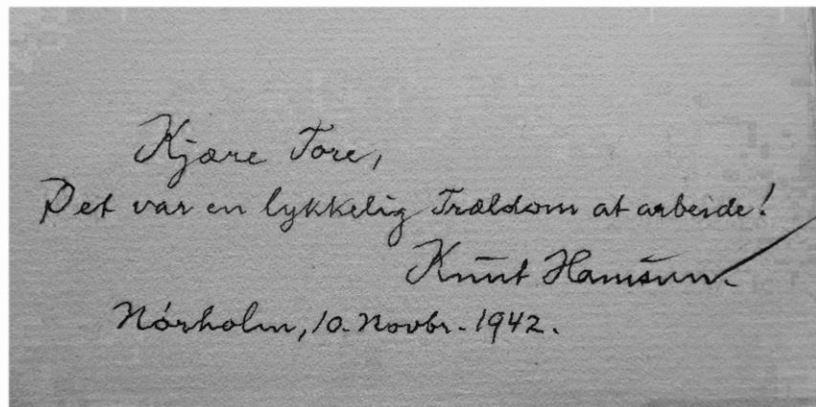 Kjære Tore,
Det var en lykkelig Trældom at arbeide!
Knut Hamsun.
Nörholm, 10. Novbr. 1942.